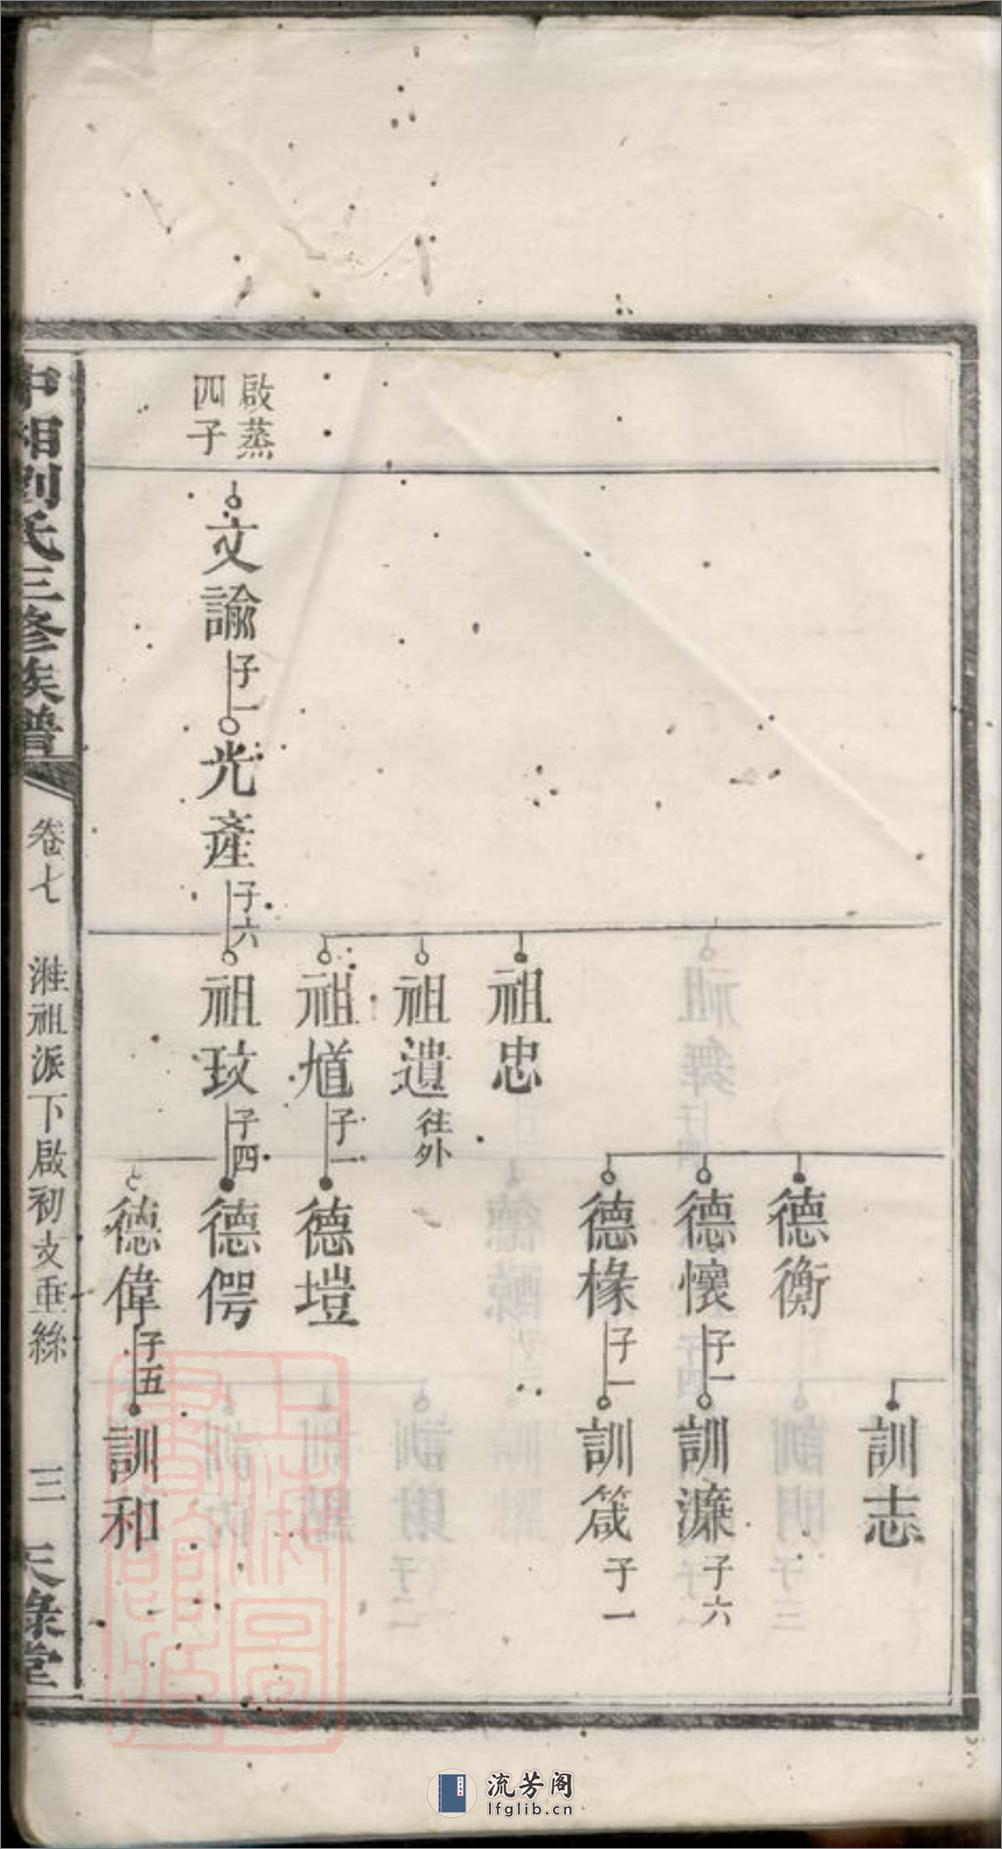 訓志
德衡
德懷
子一
訓濂
子六
德椽
子一
訓箴
子一
祖忠
祖遺
往外
祖馗
子一
德塏
啟蒸
四子
文諭
子一
光產
子六
祖玟
子四
德愕
德偉
子五
訓和
中湘劉氏三修族譜
卷七
漄祖派下啟初文垂絲
三
天祿堂
流芳阁
lfglib.cn